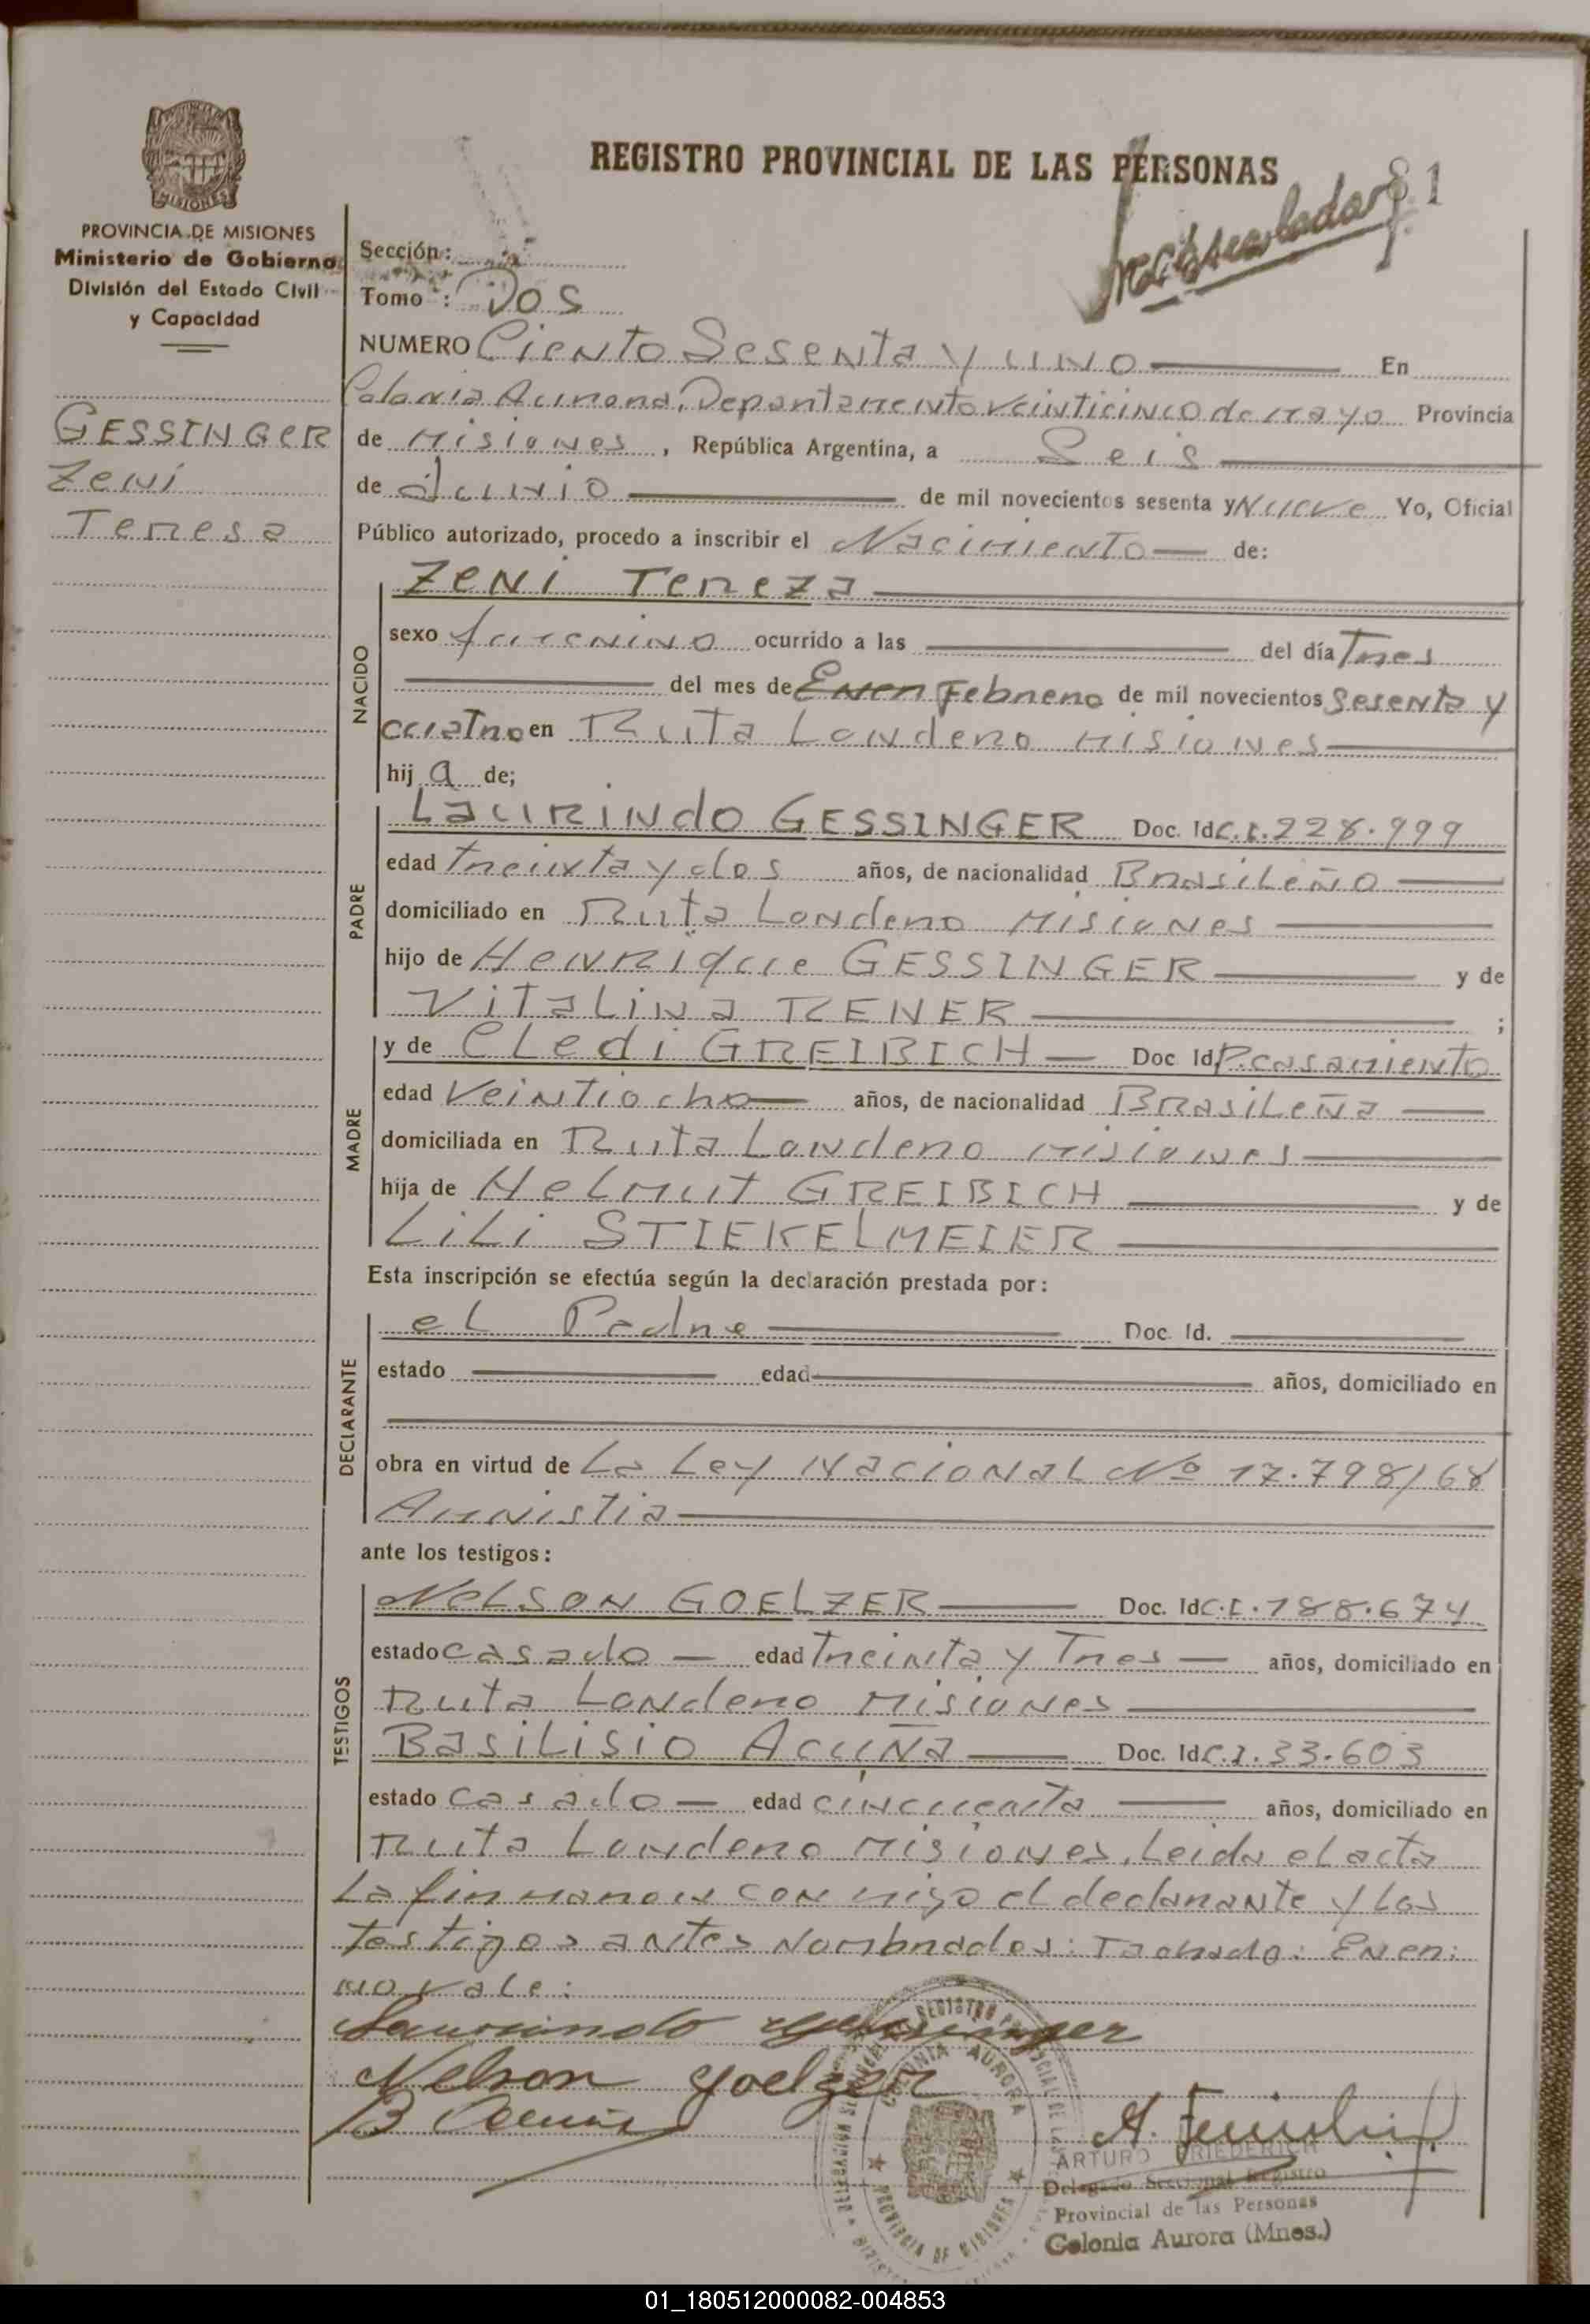 REGISTRO PROVINCIAL DE LAS PERSONAS
81
PROVINCIA DE MISIONES
Ministerio de Gobierno
División del Estado Civil
y Capacidad
GESSINGER
Zeni
Teresa
Sección:
Tomo : Dos
NUMERO Ciento Sesenta y uno En
Colonia Aurora, Departamento Veinticinco de mayo Provincia
de Misiones, República Argentina, a Seis
de Junio de mil novecientos sesenta y Nueve Yo, Oficial
Público autorizado, procedo a inscribir el Nacimiento de:
NACIDO
Zeni Tereza
sexo femenino ocurrido a las del día Tres
del mes de Enen Febrero de mil novecientos Sesenta y
cuatro en Ruta Londero Misiones
hij a de;
PADRE
Laurindo GESSINGER Doc. Id C.I. 228.999
edad treinta y dos años, de nacionalidad Brasileño
domiciliado en Ruta Londero Misiones
hijo de Henrique GESSINGER y de
Vitalina RENER ;
MADRE
y de Cledi GREIBICH Doc Id P. casamiento
edad Veintiocho años, de nacionalidad Brasileña
domiciliada en Ruta Londero misiones
hija de Helmut GREIBICH y de
Lili STIEKELMEIER
Esta inscripción se efectúa según la declaración prestada por:
DECLARANTE
el Padre Doc. Id.
estado edad años, domiciliado en
obra en virtud de La Ley Nacional Nº 17.798/68
Amnistia
ante los testigos:
TESTIGOS
Nelson GOELZER Doc. Id C.I. 188.674
estado casado edad Treinta y Tres años, domiciliado en
Ruta Londero Misiones
Basilisio Acuña Doc. Id C.I. 33.603
estado casado edad cincuenta años, domiciliado en
Ruta Londero Misiones, Leida el acta
La firmaron con migo el declarante y los
testigos antes nombrados: Tachado: Enen:
no vale:
Laurindo Gessinger
Nelson Goelzer
B Acuña
REGISTRO PROVINCIAL DE LAS
COLONIA AURORA
PROVINCIA DE MISIONES
ARTURO FRIEDERICH
Delegado Seccional Registro
Provincial de las Personas
Colonia Aurora (Mnes.)
01_180512000082-004853